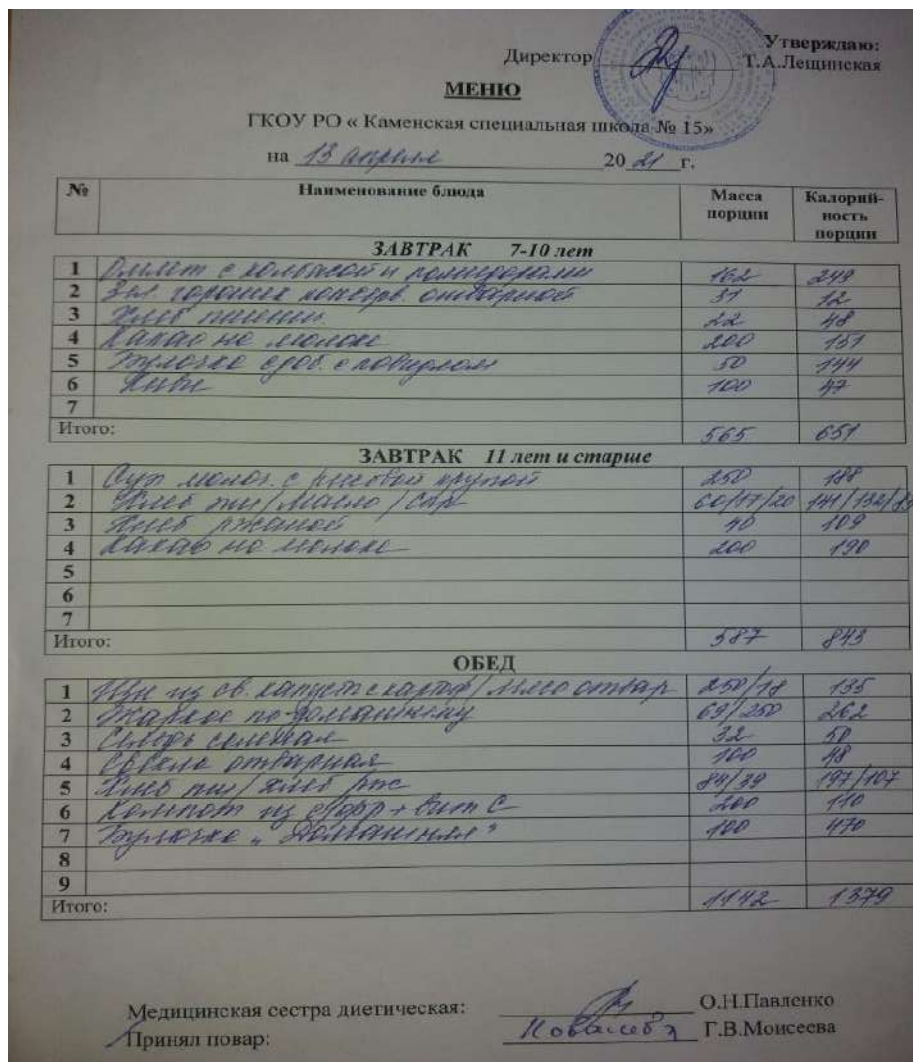 Утверждаю:
Директор Т.А.Лещинская
МЕНЮ
ГКОУ РО « Каменская специальная школа № 15»
на 13 апреля 2021 г.
№ Наименование блюда Масса порции Калорий-ность порции
ЗАВТРАК 7-10 лет
1 Омлет с колбасой и помидорами 162 249
2 Зел. горошек консерв. отварной 31 12
3 Хлеб пшенич. 22 48
4 Какао на молоке 200 151
5 Булочка сдоб. с повидлом 50 144
6 Киви 100 47
7
Итого: 565 651
ЗАВТРАК 11 лет и старше
1 Суп молоч. с рисовой крупой 250 188
2 Хлеб пш/Масло/сыр 60/17/20 141/132/83
3 Хлеб ржаной 40 109
4 Какао на молоке 200 190
5
6
7
Итого: 587 843
ОБЕД
1 Щи из св. капусты с картоф/Мясо отвар 250/18 135
2 Жаркое по-домашнему 69/250 262
3 Сельдь соленая 32 50
4 Свекла отварная 100 48
5 Хлеб пш/хлеб рж 84/39 197/107
6 Компот из с/фр + вит С 200 110
7 Булочка "Домашняя" 100 470
8
9
Итого: 1142 1379
Медицинская сестра диетическая: О.Н.Павленко
Принял повар: Г.В.Моисеева